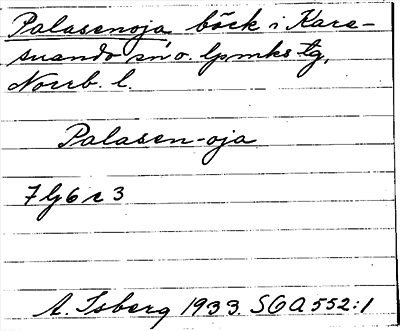 Palasenoja bäck i Kare-
suando sn o. lpmks tg,
Norrb. l.
Palasen-oja
A. Isberg 1933. SOA 552:1